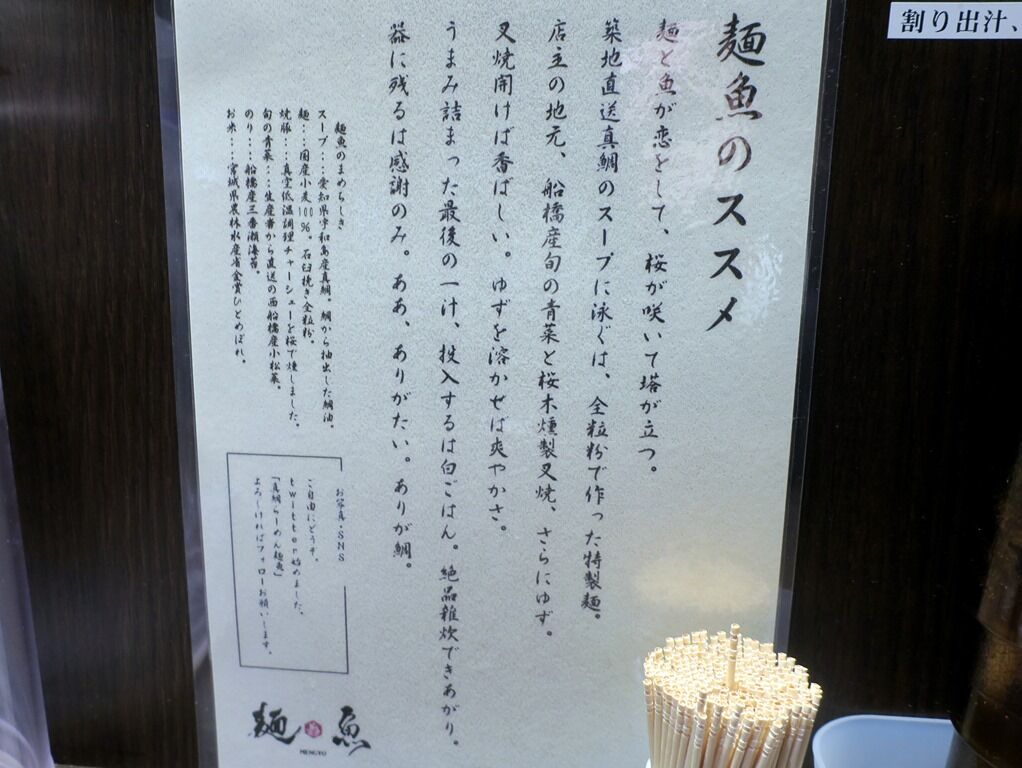 麺魚のススメ
麺と魚が恋をして、桜が咲いて塔が立つ。
築地直送真鯛のスープに泳ぐは、全粒粉で作った特製麺。
店主の地元、船橋産旬の青菜と桜木燻製叉焼、さらにゆず。
叉焼開けば香ばしい。ゆずを溶かせば爽やかさ。
うまみ詰まった最後の一汁、投入するは白ごはん。絶品雑炊できあがり。
器に残るは感謝のみ。ああ、ありがたい。ありが鯛。
麺魚のまめちしき
スープ・・・愛知県宇和島産真鯛。鯛から抽出した鯛油。
麺・・・国産小麦100%。石臼挽き全粒粉。
焼豚・・・真空低温調理チャーシューを桜で燻しました。
旬の青菜・・・生産者から直送の西船橋産小松菜。
のり・・・船橋産三番瀬海苔。
お米・・・宮城県農林水産省金賞ひとめぼれ。
お写真・SNS
ご自由にどうぞ。
twitter始めました、
「真鯛らーめん麺魚」
よろしければフォローお願いします。
麺魚
MENGYO
割り出汁、